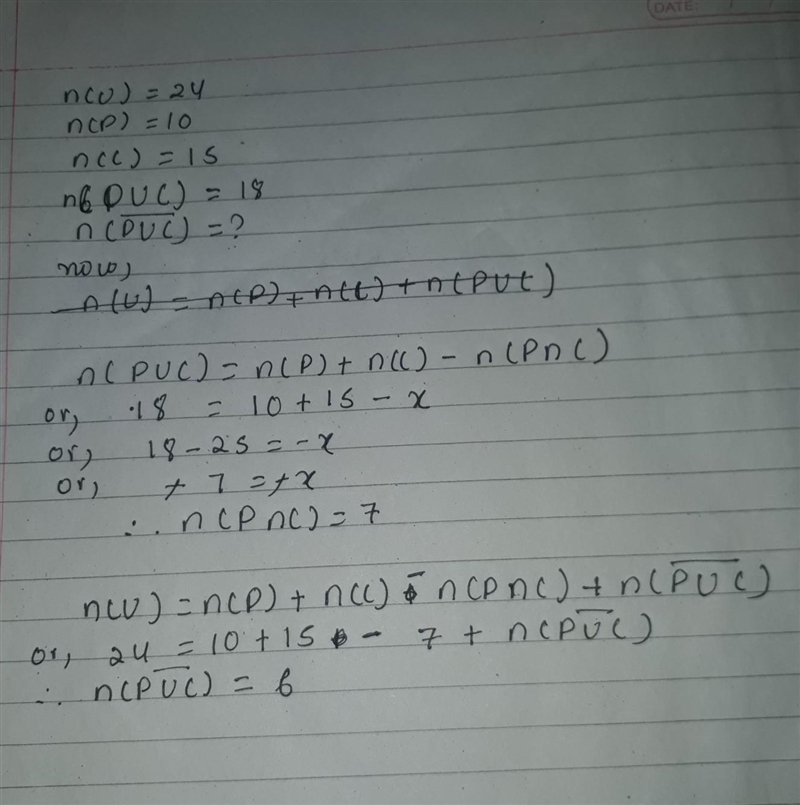 DATE:
n(U) = 24
n(P) = 10
n(C) = 15
n(PUC) = 18
n(P̅U̅C̅) = ?
now,
n(U) = n(P) + n(C) + n(PUC)
n(PUC) = n(P) + n(C) - n(PnC)
or, 18 = 10 + 15 - x
or, 18 - 25 = -x
or, + 7 = + x
∴ n(PnC) = 7
n(U) = n(P) + n(C) - n(PnC) + n(P̅U̅C̅)
or, 24 = 10 + 15 - 7 + n(P̅U̅C̅)
∴ n(P̅U̅C̅) = 6